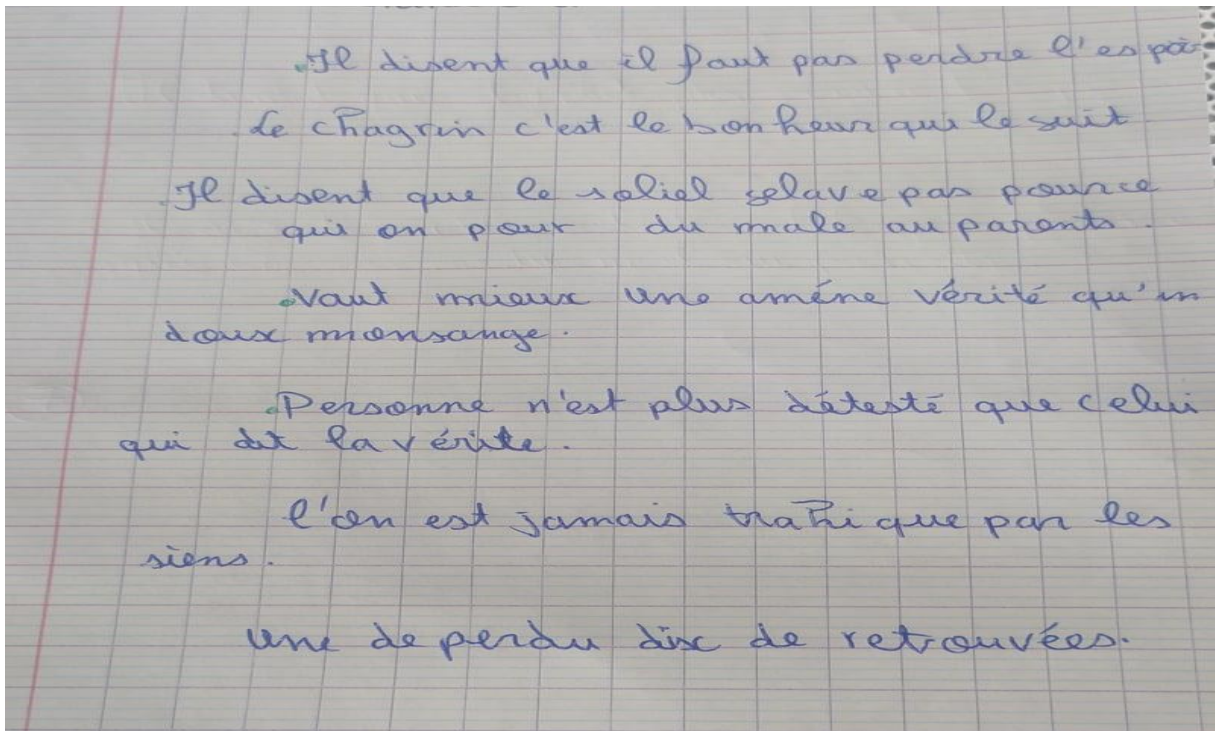 Il disent que il faut pas perdre l'espoi
Le chagrin c'est le bonheur qui le suit
Il disent que le soliel selave pas pource
qui on pour du male au parents.
Vaut mieux une amène vérité qu'un
doux monsange.
Personne n'est plus détesté que celui
qui dit la vérite.
l'on est jamais trahi que par les
siens.
une de perdu dix de retrouvées.